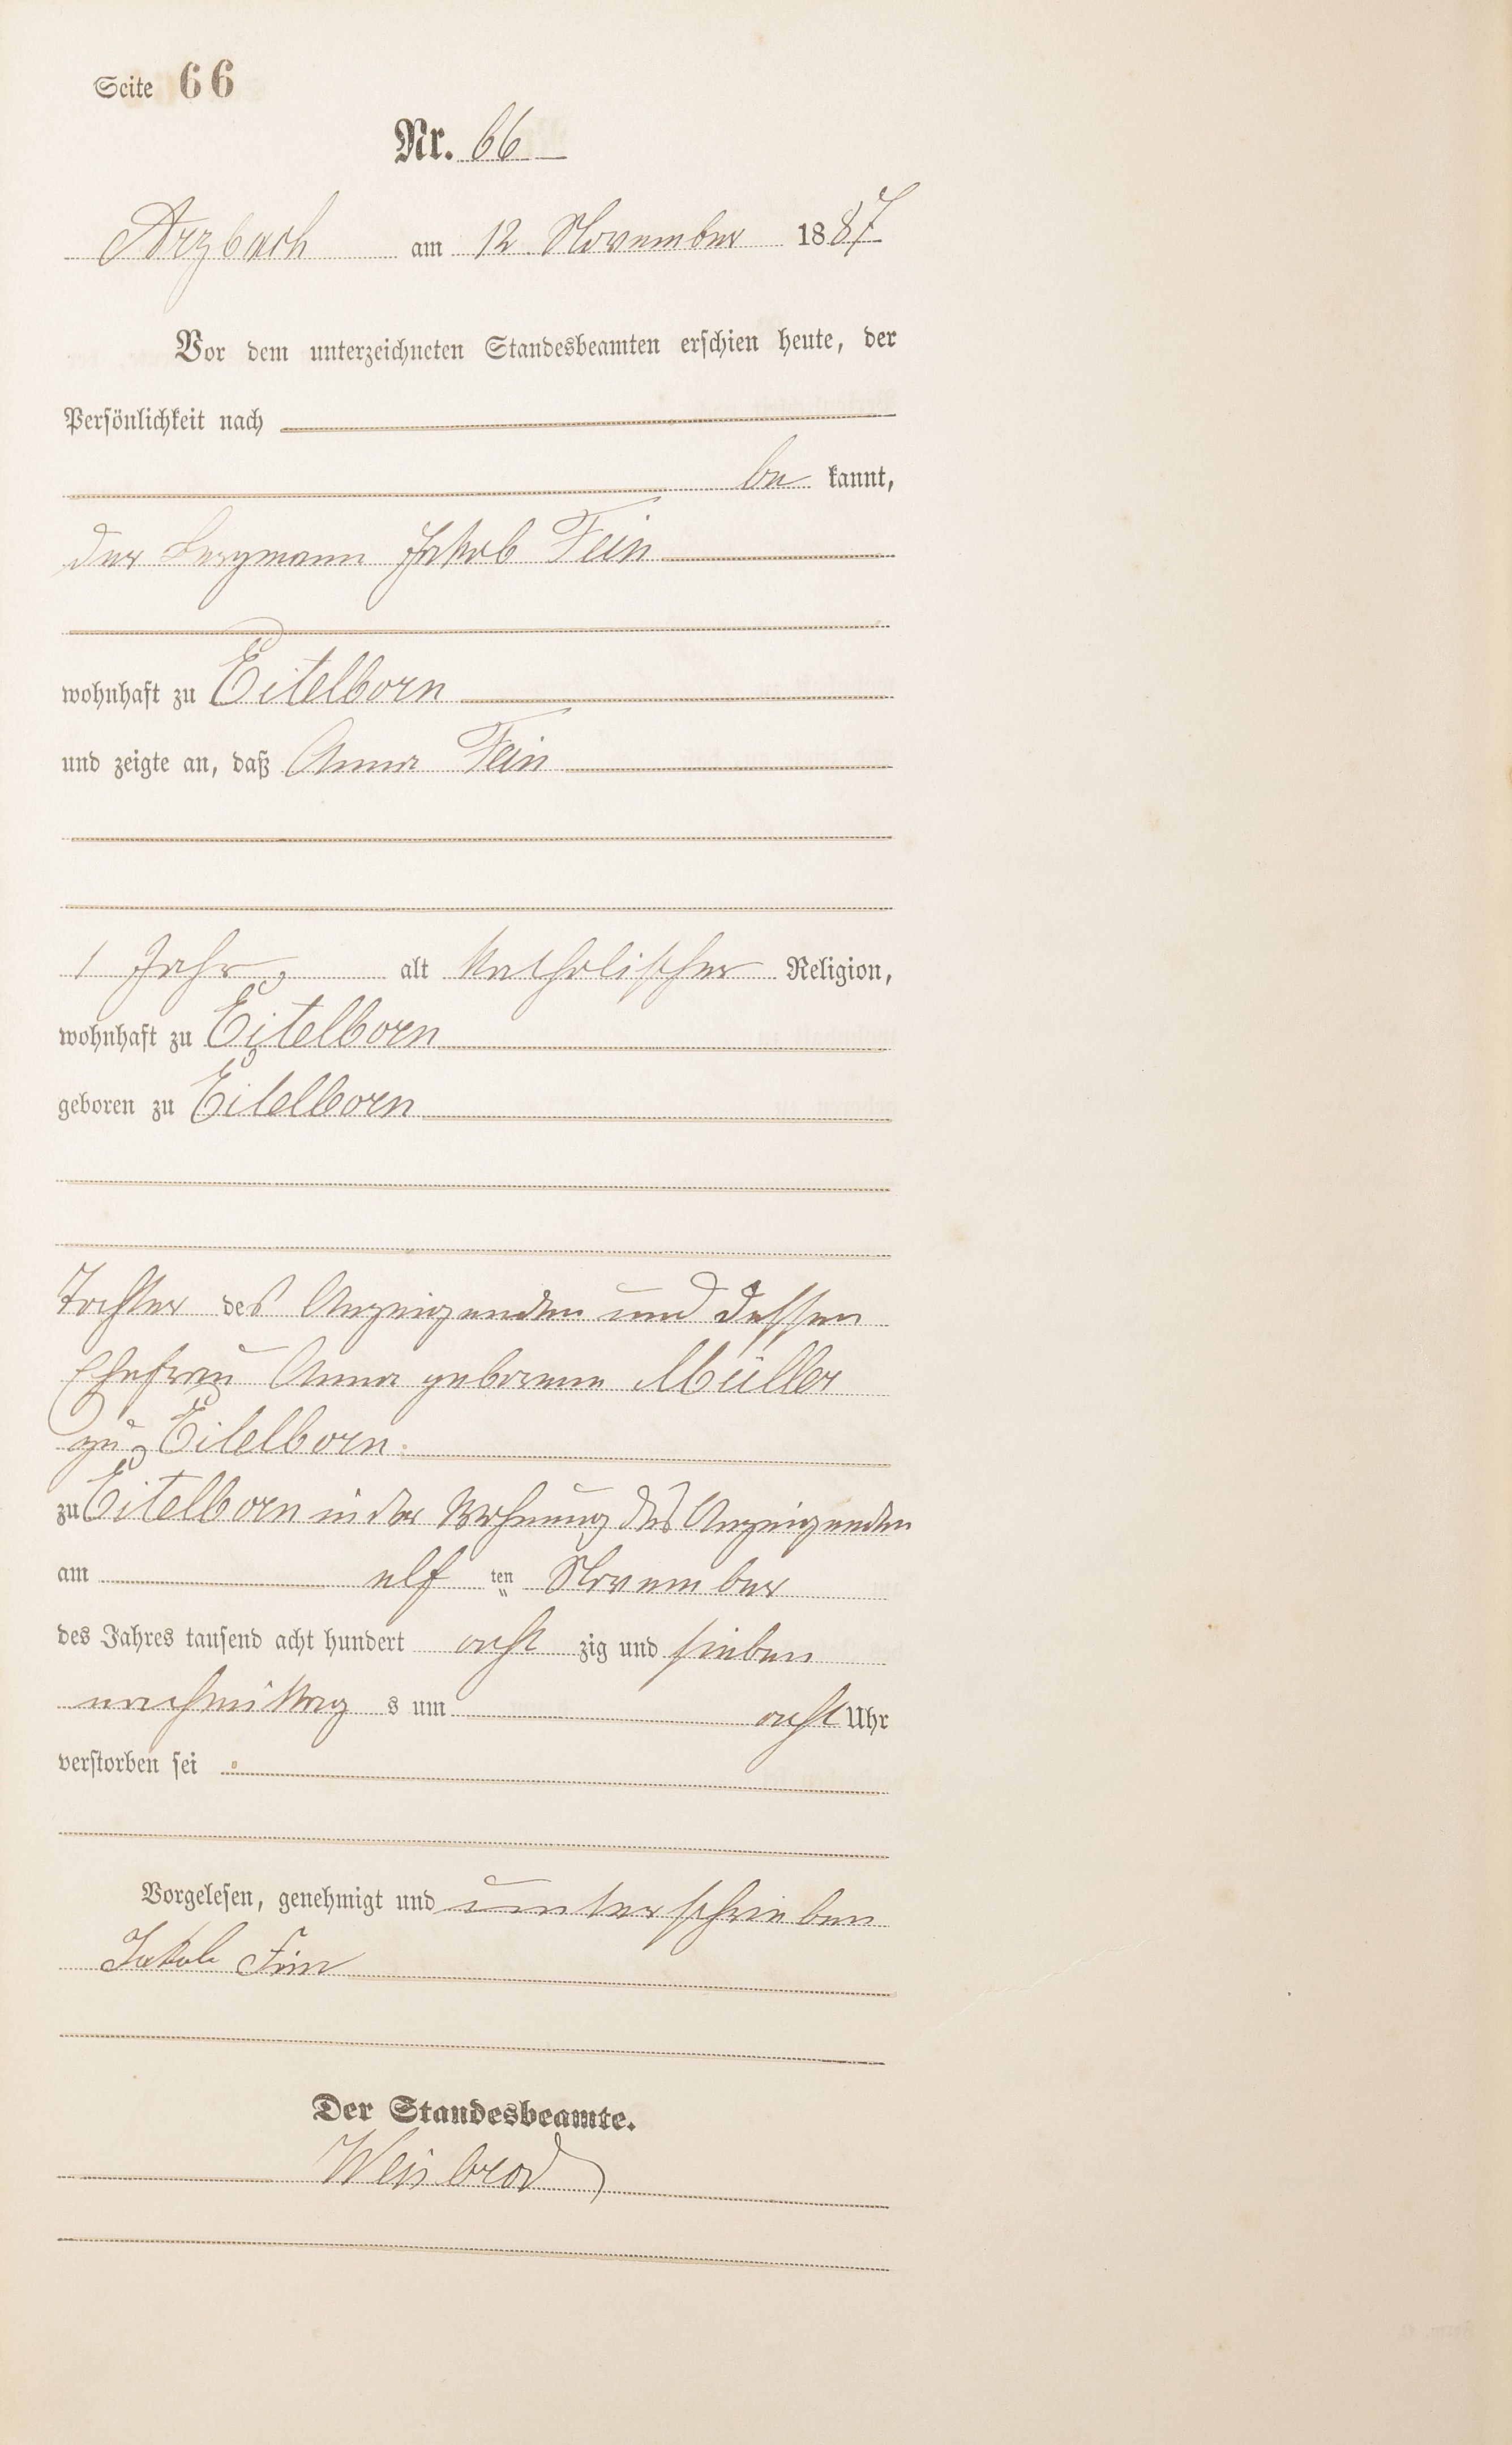 Seite 66
Nr. 66
Arzbach am 12 November 1887
Vor dem unterzeichneten Standesbeamten erschien heute, der
Persönlichkeit nach
be kannt,
der Bergmann Jakob Fein
wohnhaft zu Eitelborn
und zeigte an, daß Anna Fein
1 Jahr, alt katholischer Religion,
wohnhaft zu Eitelborn
geboren zu Eitelborn
Tochter des Anzeigenden und dessen
Ehefrau Anna geborene Müller
zu Eitelborn.
zu Eitelborn in der Wohnung des Anzeigenden
am elf ten November
des Jahres tausend acht hundert acht zig und sieben
nachmittag s um acht Uhr
verstorben sei
Vorgelesen, genehmigt und unterschrieben
Jakob Fein
Der Standesbeamte.
Weisbrod